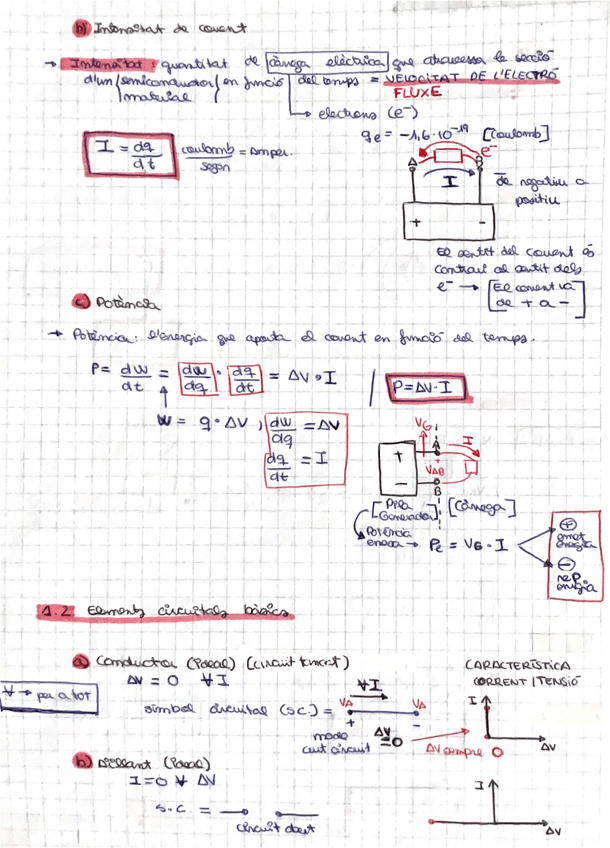 b) Intensitat de corrent
→ Intensitat: quantitat de càrrega elèctrica que atravessa la secció
d'un semiconductor en funció del temps = VELOCITAT DE L'ELECTRÓ
material
FLUXE
→ electrons (e⁻)
qe = -1,6·10⁻¹⁹ [Coulomb]
I = dq/dt
coulomb/segon = Amper.
A
B
e⁻
I
de negatiu a
positiu
+ -
El sentit del corrent és
contrari al sentit dels
e⁻ → [El corrent va
de + a -]
c) Potència
→ Potència: l'energia que aporta el corrent en funció del temps.
P = dW/dt = dW/dq · dq/dt = ΔV · I | P = ΔV·I
W = q·ΔV, dW/dq = ΔV
dq/dt = I
VG
A
I
+
VAB
-
B
[Pila Generador] [Càrrega]
Potència
→ PE = VG · I
⊕
emet
energia
⊖
rep
energia
1.2 Elements circuitals bàsics
a) Conductor (ideal) (circuit tancat)
ΔV = 0 ∀I
∀ → per a tot
símbol circuital (s.c.) =
∀I
VA VA
+ -
mode
curt circuit
ΔV = 0
CARACTERÍSTICA
CORRENT/TENSIÓ
I
ΔV
ΔV sempre 0
b) Aïllant (ideal)
I = 0 ∀ ΔV
s.c. =
circuit obert
I
ΔV